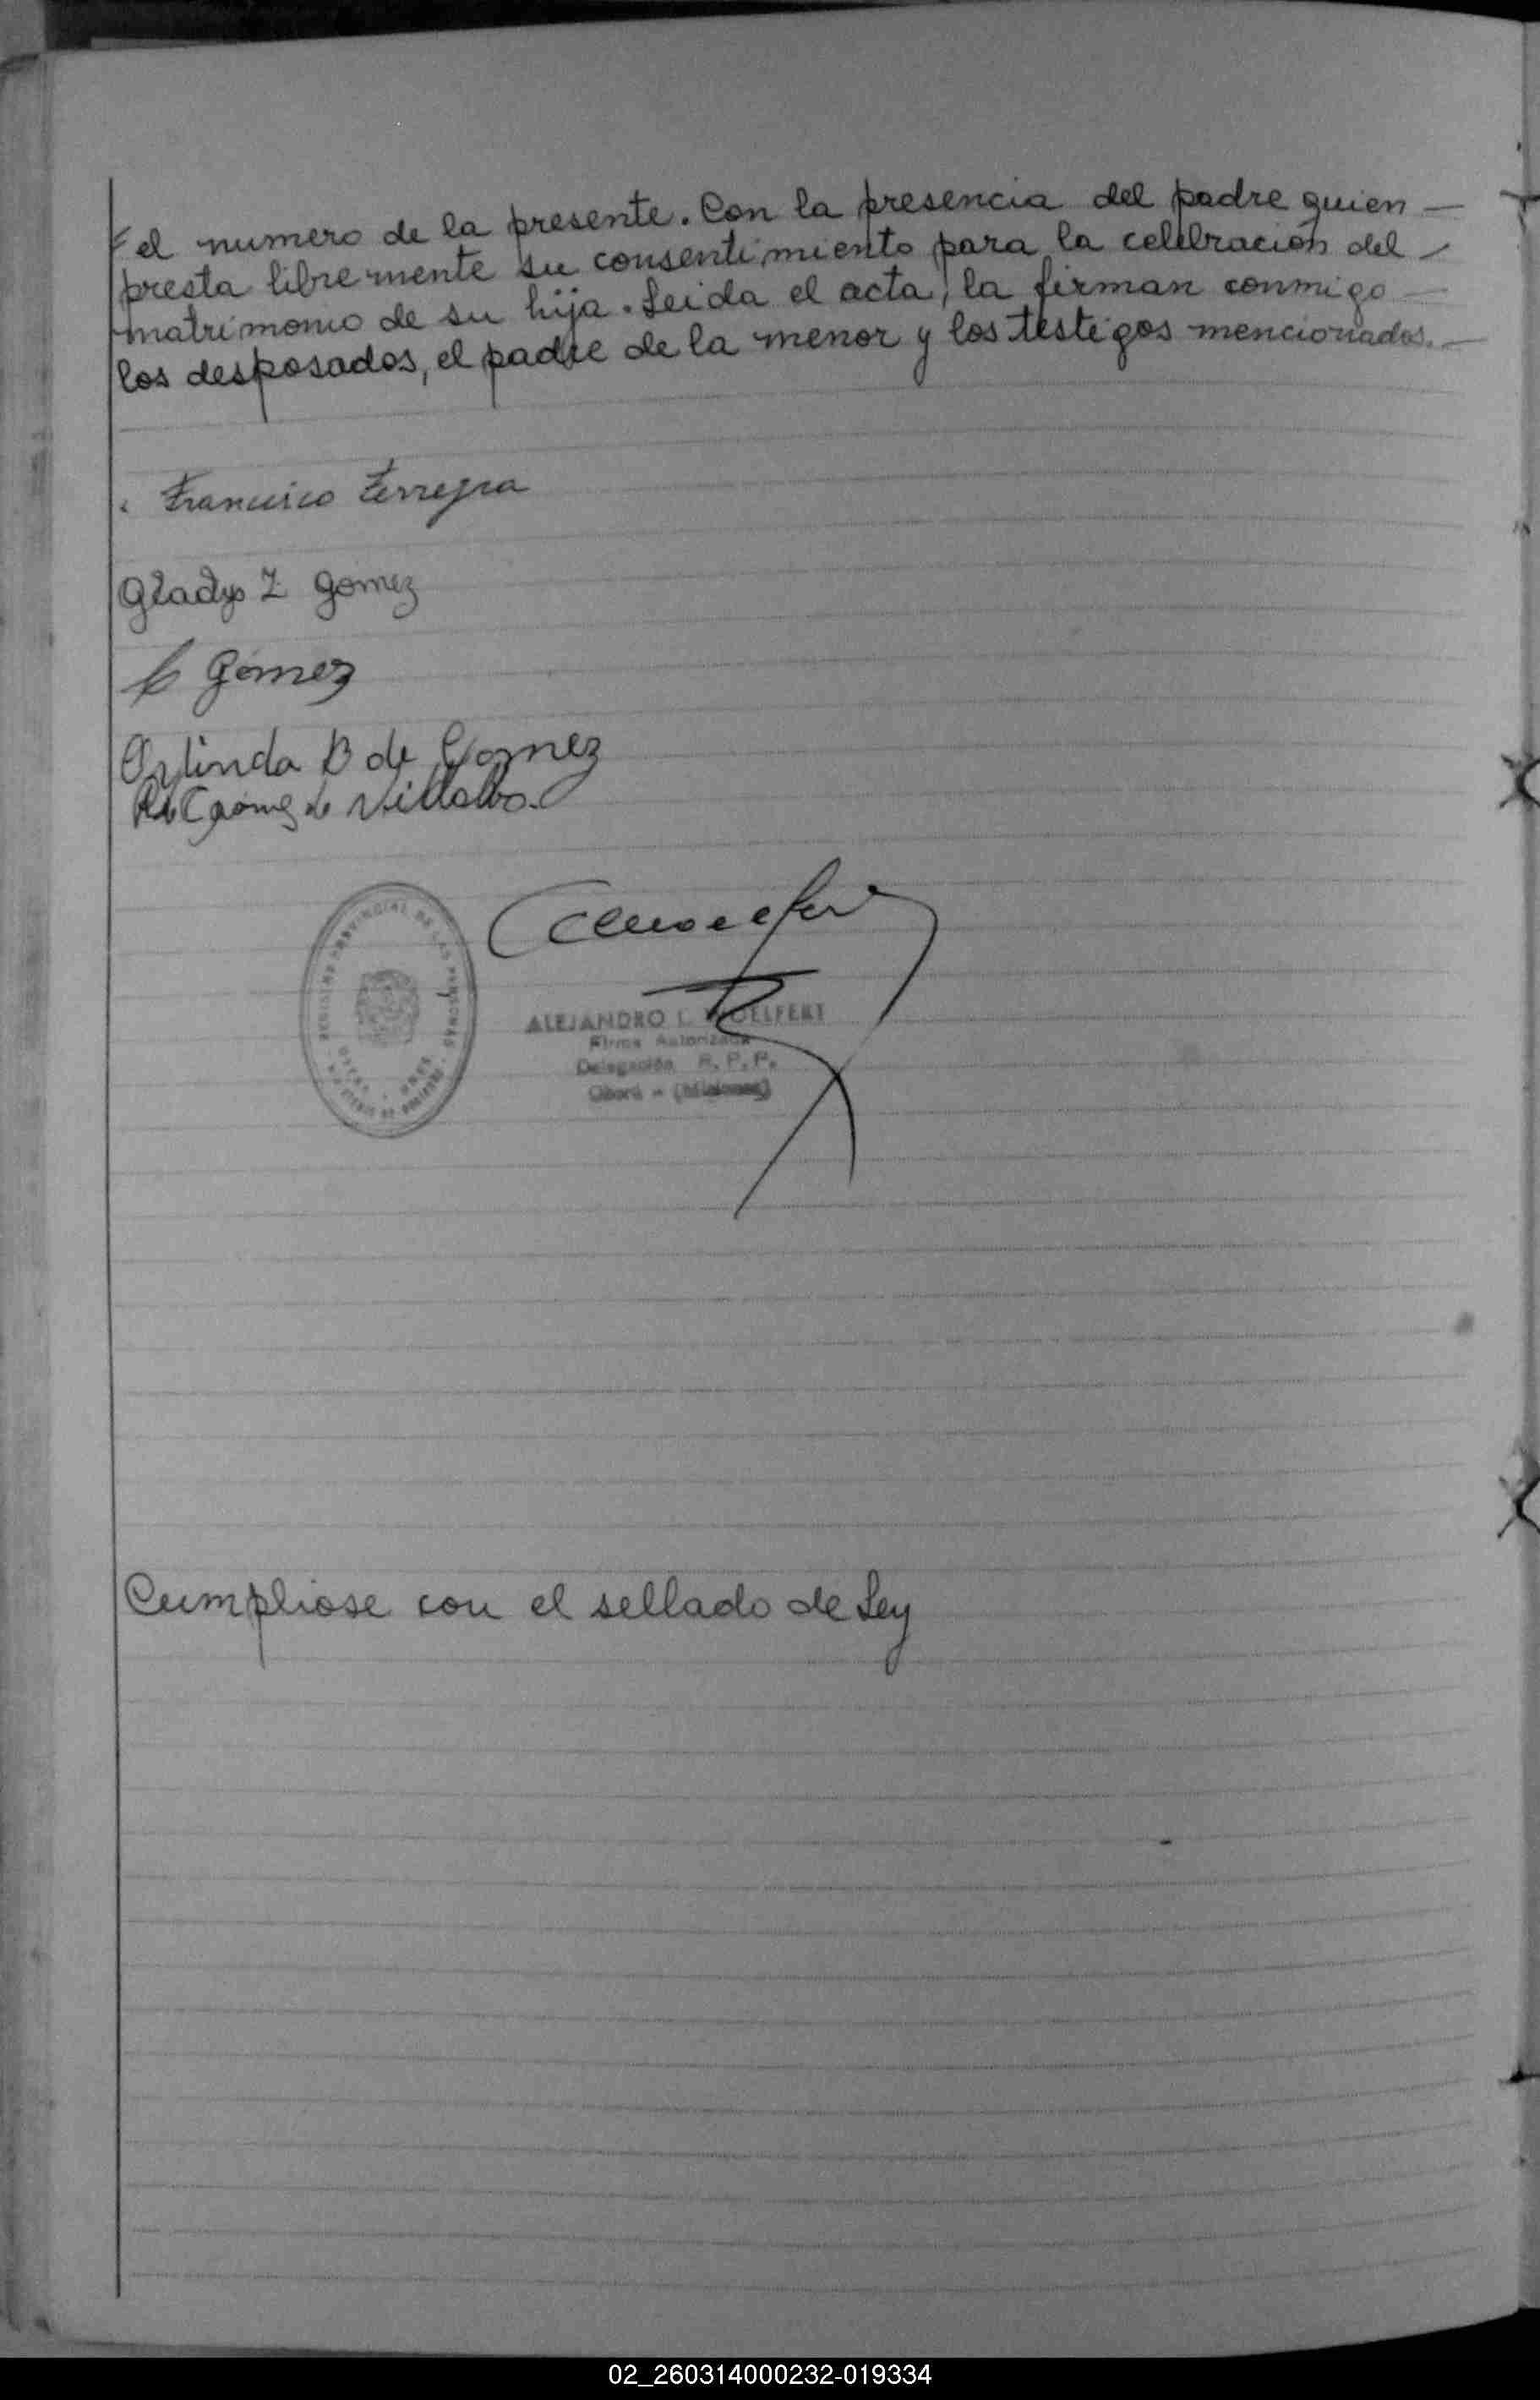 el numero de la presente. Con la presencia del padre quien —
presta libremente su consentimiento para la celebración del —
matrimonio de su hija. Leida el acta, la firman conmigo —
los desposados, el padre de la menor y los testigos mencionados. —
Francisco Ferreyra
Gladys Z Gomez
Gómez
B de Gomez
de Villalba.
REGISTRO PROVINCIAL DE LAS PERSONAS
ALEJANDRO L. WOELFERT
Firma Autorizada
Delegación R. P. P.
Oberá - (Misiones)
Cumpliose con el sellado de Ley
02_260314000232-019334